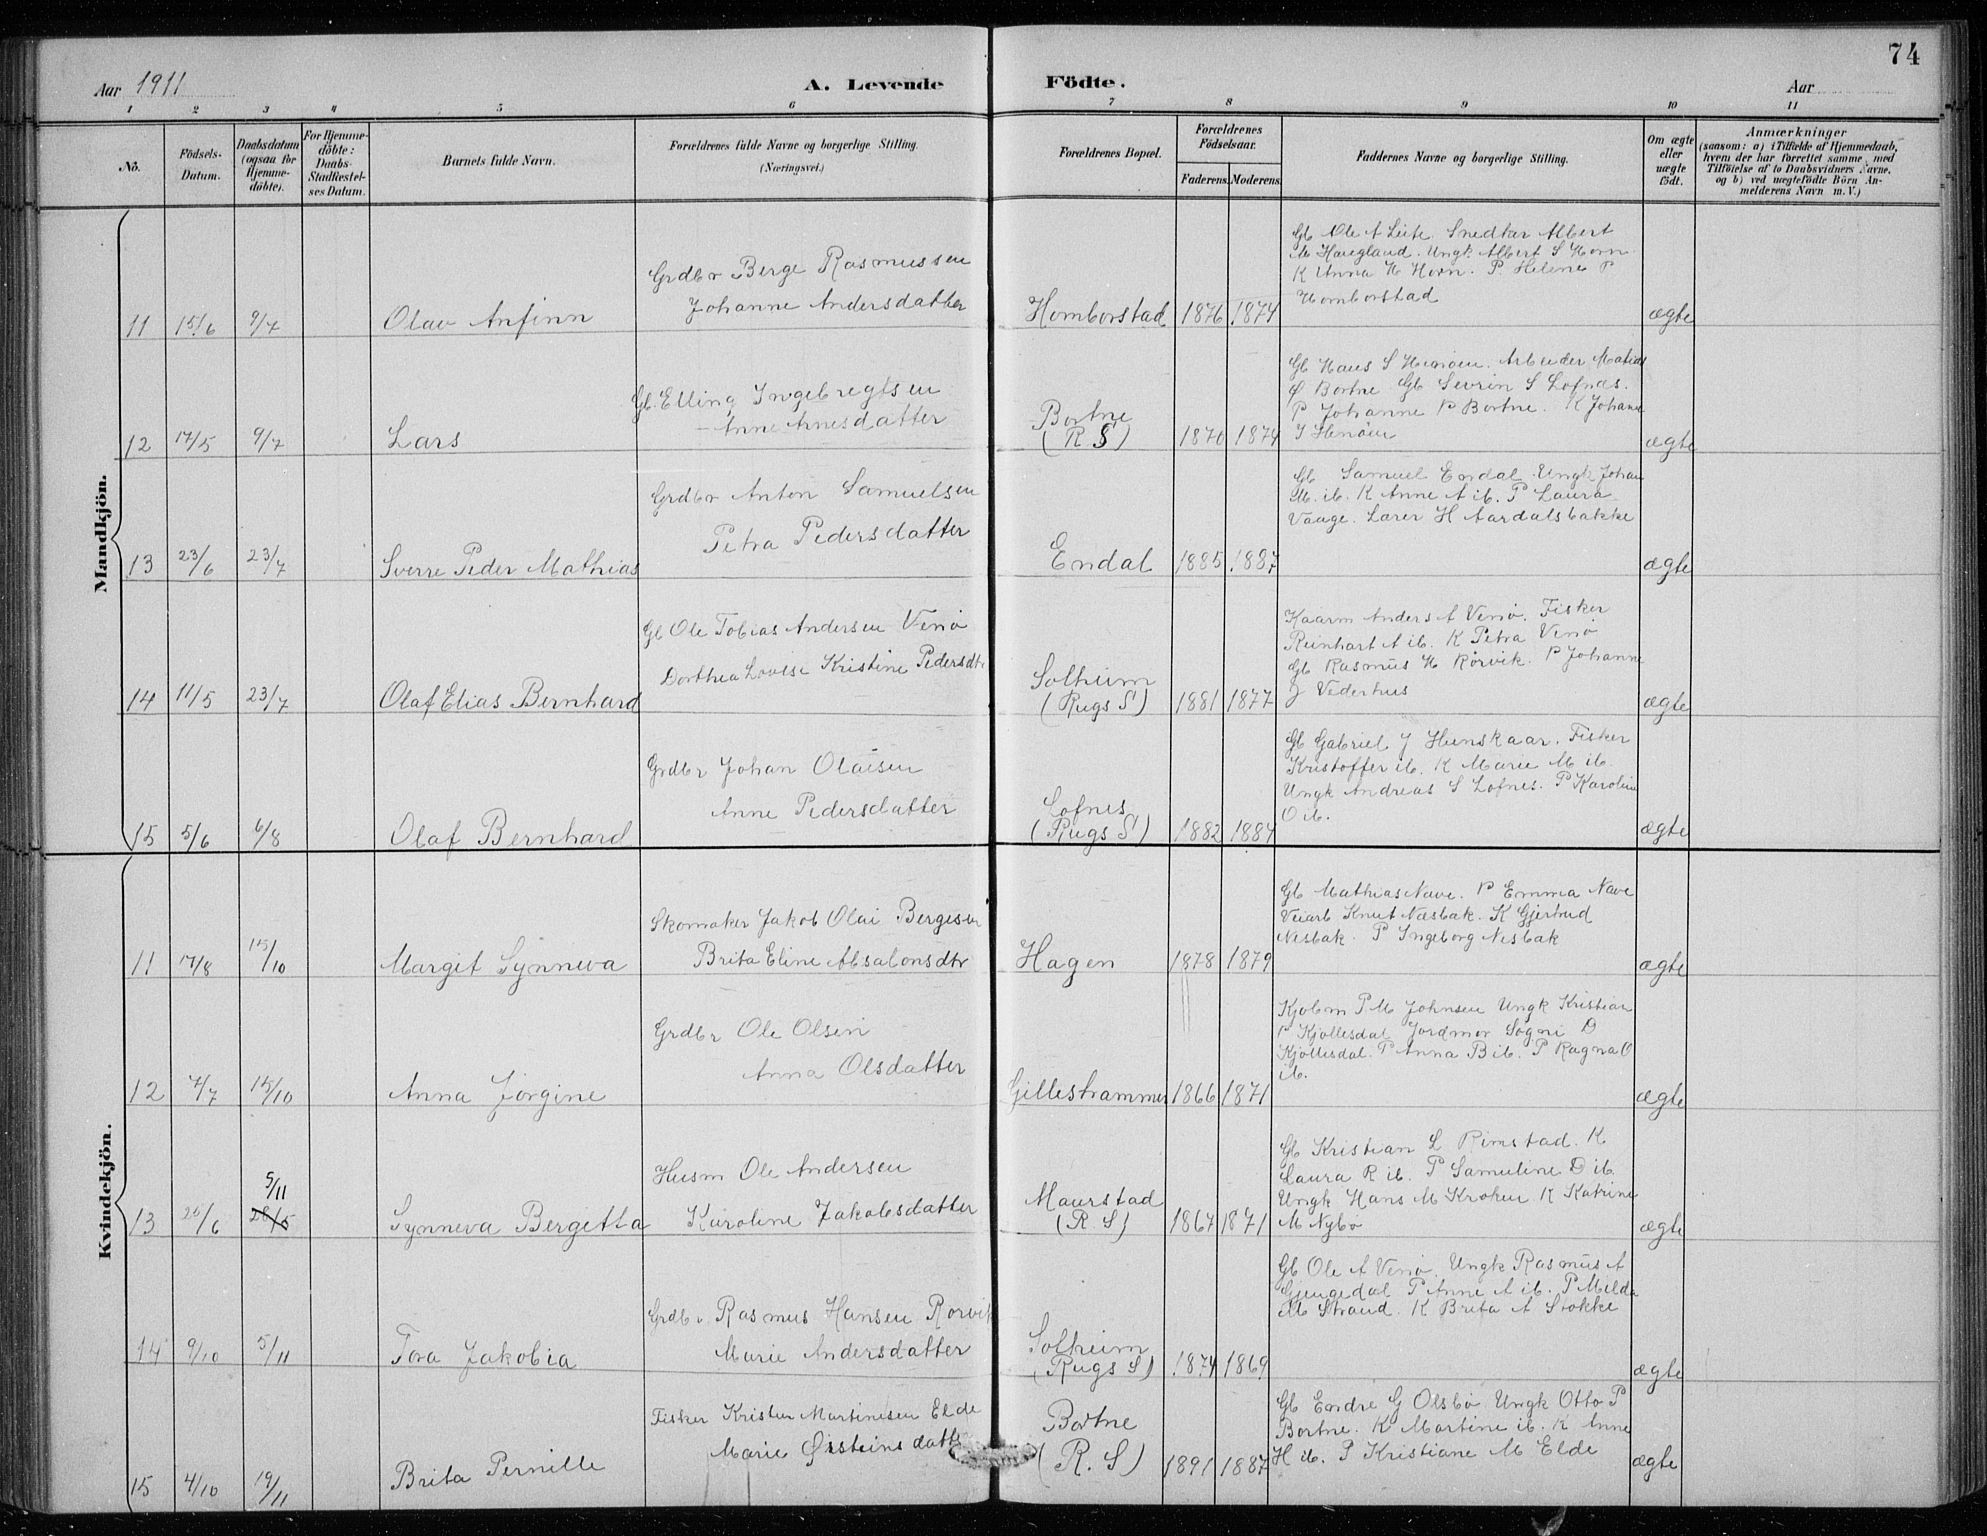 74
Aar 1911
A. Levende Födte.
Aar
1 2 3 4 5 6 7 8 9 10 11
No.
Födsels-Datum.
Daabsdatum (ogsaa for Hjemme-döbte).
For Hjemme-döbte: Daabs-Stadfæstel-ses Datum.
Barnets fulde Navn.
Forældrenes fulde Navne og borgerlige Stilling.
(Næringsvei.)
Forældrenes Bopæl.
Forældrenes Födselsaar.
Faderens. Moderens.
Faddernes Navne og borgerlige Stilling.
Om ægte eller uægte födt.
Anmærkninger
(saasom: a) i Tilfælde af Hjemmedaab, hvem der har forrettet samme, med Tilföielse af to Daabsvidners Navne, og b) ved uægtefödte Börn An-melderens Navn m. V.)
Mandkjön.
Gb Ole A Leite. Snedkar Albert
M Haugland. Ungk. Albert S Horn
K Anna H Horn. P. Helene P
Homborstad
Grdbr Berge Rasmussen
Johanne Andersdatter
11 15/6 9/7 Olav Anfinn Homborstad 1876 1874 ægte
Gb Hans S Henöen. Arbeider Matias
Ø Bortne Gb Sevrin S Lofnes.
P Johanne P Bortne. K Johanne
J Henöen
Gb. Elling Ingebregtsen
Anne Arnesdatter
12 17/5 9/7 Lars Bortne (R S) 1870 1874 ægte
Gb Samuel Endal Ungk Johan
M. ib. K Anne A ib. P Laura
Vaage. Lærer H Aardalsbakke
Grdbr Anton Samuelsen
Petra Pedersdatter
13 23/6 23/7 Sverre Peder Mathias Endal 1885 1887 ægte
Kaarm Anders A Verø. Fisker
Reinhart A ib. K Petra Verø
Gb Rasmus H Rörvik. P Johanne
J Vederhus
Gb Ole Tobias Andersen Verø
Dorthea Lovise Kristine Pedersdtr
14 11/5 23/7 Olaf Elias Bernhard Solheim (Rugs S) 1881 1877 ægte
Gb Gabriel J Hunskaar. Fisker
Kristoffer ib. K Marie M ib.
Ungk Andreas S Lofnes. P Karoline
O ib.
Grdbr Johan Olaisen
Anne Pedersdatter
15 5/6 6/8 Olaf Bernhard Lofnes (Rugs S) 1882 1884 ægte
Kvindekjön.
Gb Mathias Nave. P Emma Nave
Veiarb Knut Næsbak. K Gjertrud
Nesbak. P Ingeborg Nesbak
Skomaker Jakob Olai Bergesen
Brita Eline Absalonsdtr
11 17/8 15/10 Margit Synneva Hagen 1878 1879 ægte
Kjöbm P M Johnsen Ungk Kristian
P Kjöllesdal Jordmor Sögni D
Kjöllesdal. P Anna B ib. P Ragna O
ib.
Grdbr Ole Olsen
Anna Olsdatter
12 7/7 15/10 Anna Jörgine Gillestrammen 1866 1871 ægte
Gb Kristian L Rimstad. K
Laura R ib. P Samuline D ib.
Ungk Hans M Kroken. K Katrine
M Nybö
Husm Ole Andersen
Karoline Jakobsdatter
5/11
13 25/6 28/5 Synneva Bergitta Maurstad (R. S) 1867 1871 ægte
Gb Ole A Verø. Ungk Rasmus A
Gjengedal P Anne A ib. P Milda
M Strand. K Brita A Stokke
Grdbr Rasmus Hansen Rorvik
Marie Andersdatter
14 9/10 5/11 Tora Jakobia Solheim (Rugs S) 1874 1869 ægte
Gb Endre G Olsbö Ungk Otto P
Bortne. K Martine ib. K Anne
H ib. P Kristiane M Elde
Fisker Kristen Martinesen Elde
Marie Øisteinsdatter
15 4/10 19/11 Brita Pernille Bortne (R. S) 1891 1887 ægte